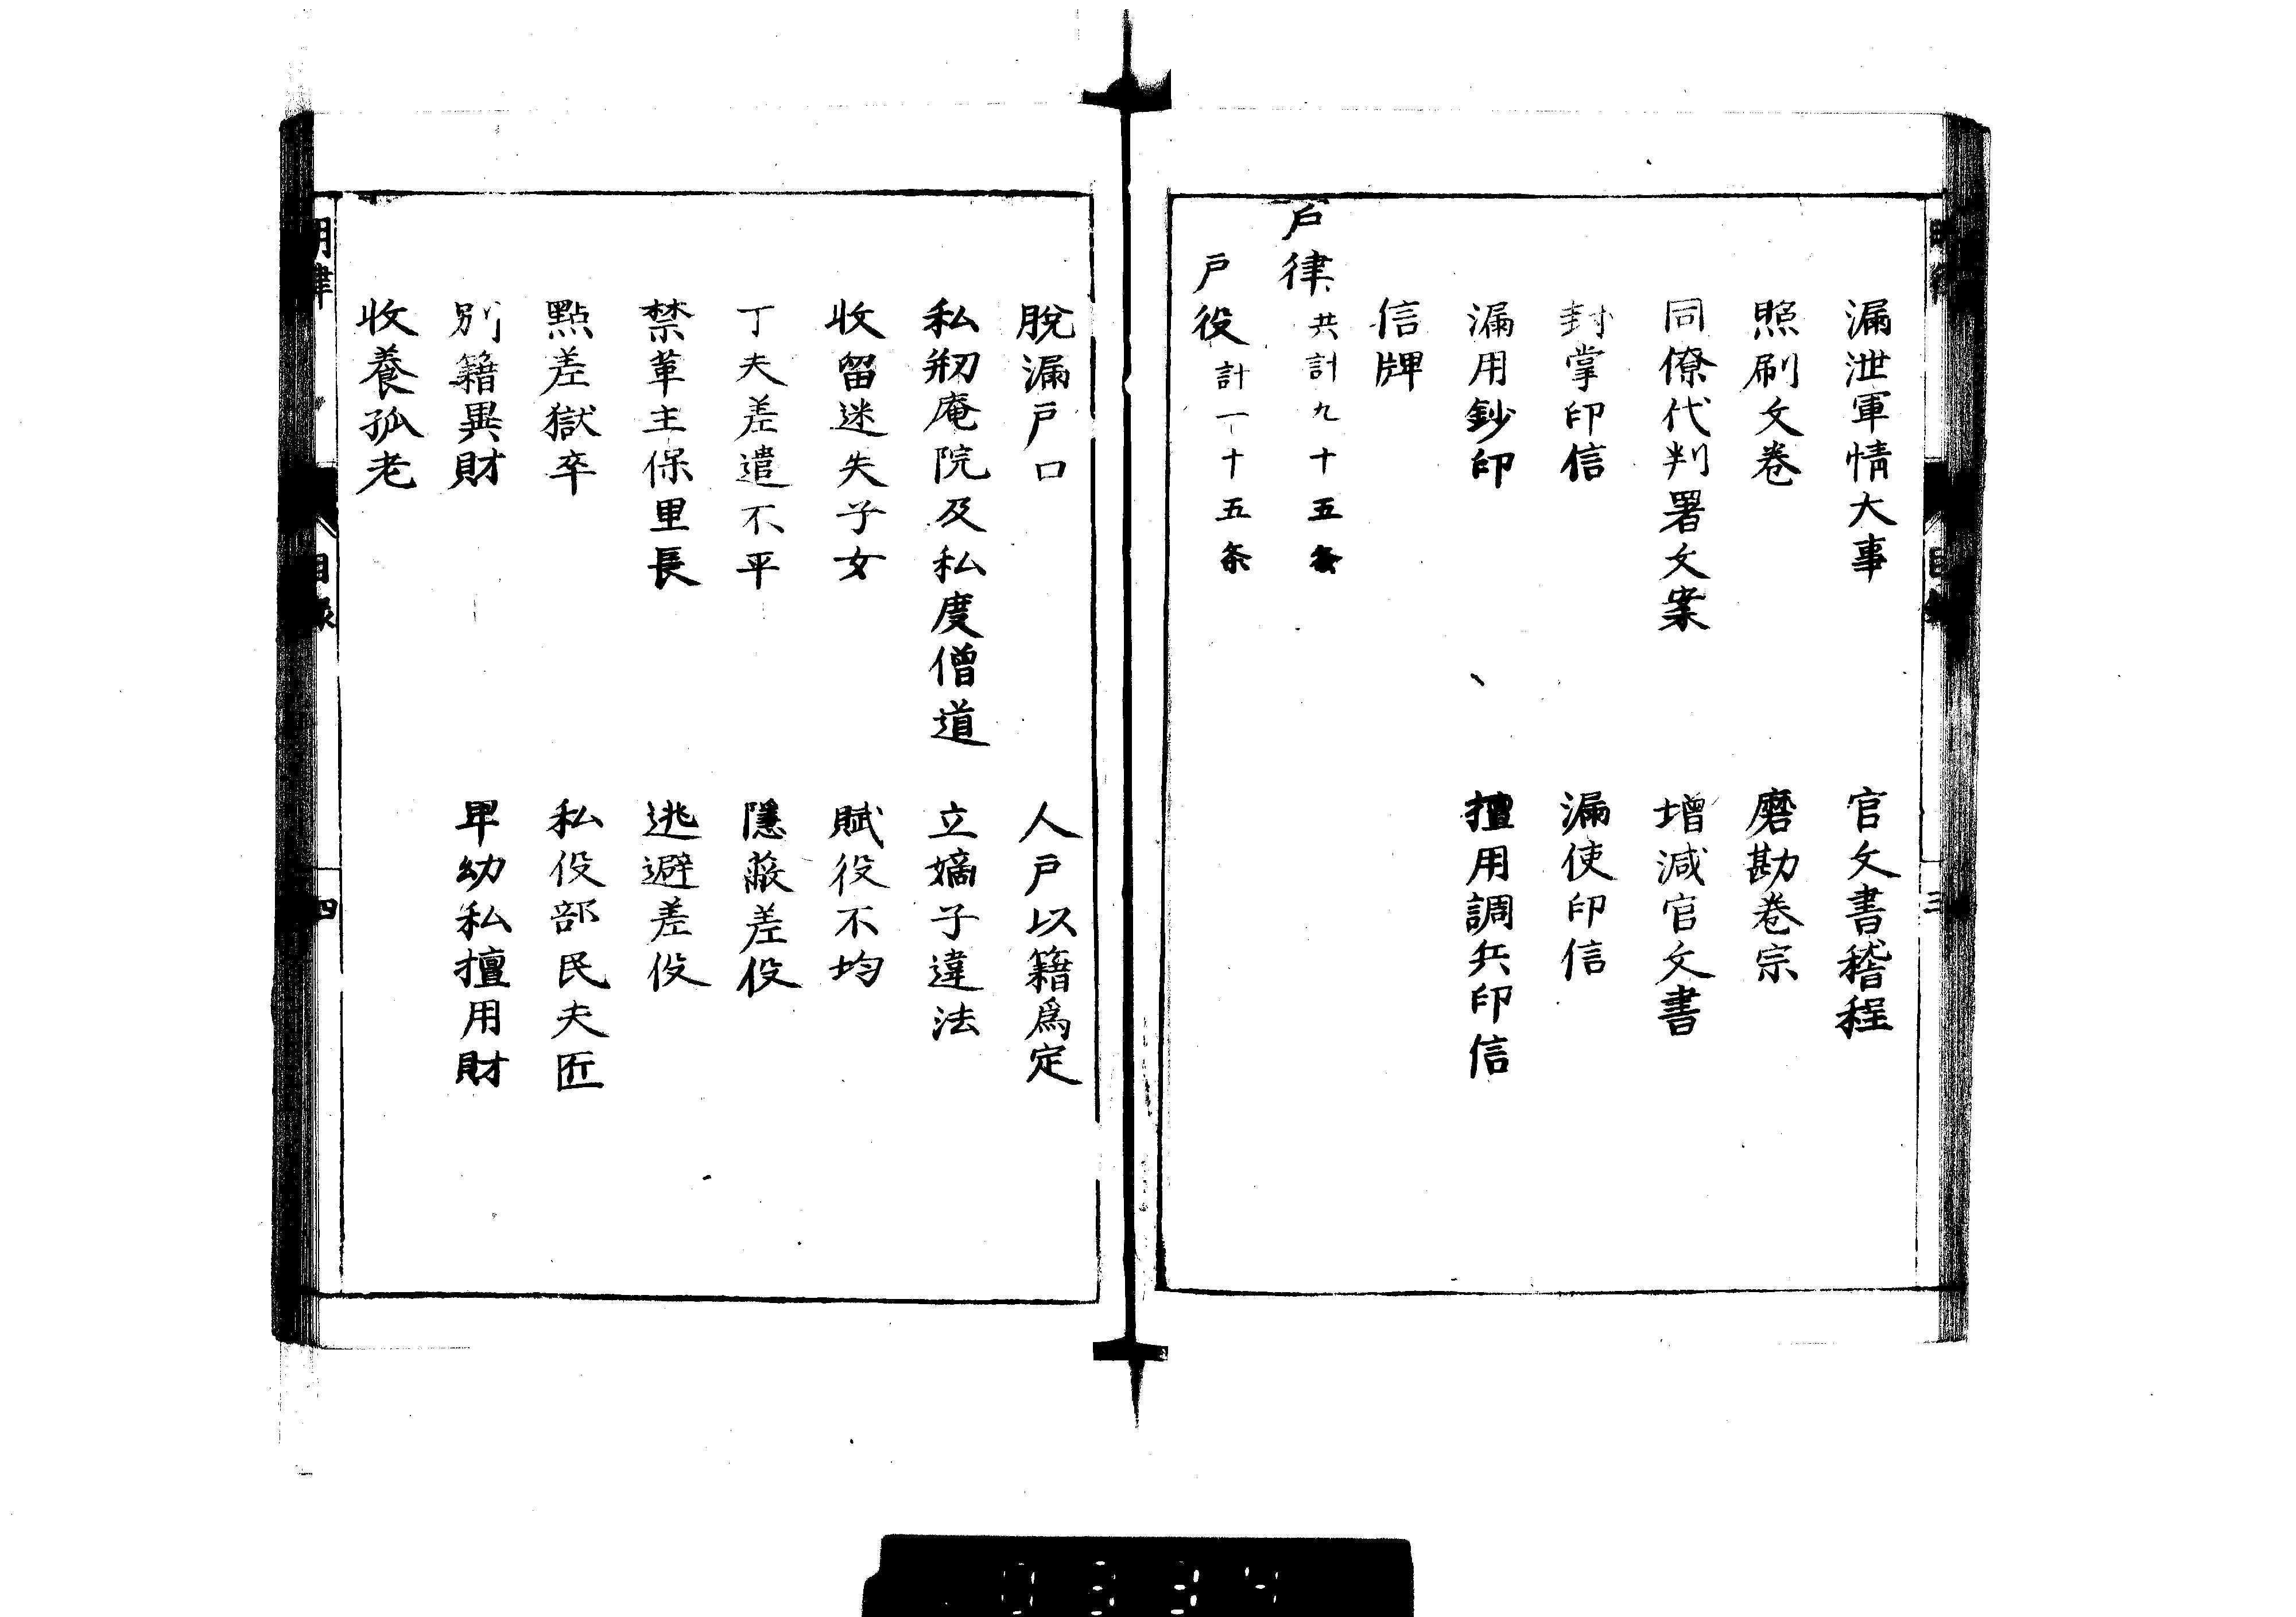 漏泄軍情大事　官文書稽程
照刷文卷　磨勘卷宗
同僚代判署文案　增減官文書
封掌印信　漏使印信
漏用鈔印　擅用調兵印信
信牌
戶律 共計九十五条
戶役 計一十五条
脫漏戶口　人戶以籍爲定
私刱庵院及私度僧道　立嫡子違法
收留迷失子女　賦役不均
丁夫差遣不平　隱蔽差役
禁革主保里長　逃避差役
點差獄卒　私役部民夫匠
別籍異財　卑幼私擅用財
收養孤老
明律
目錄
四
0334